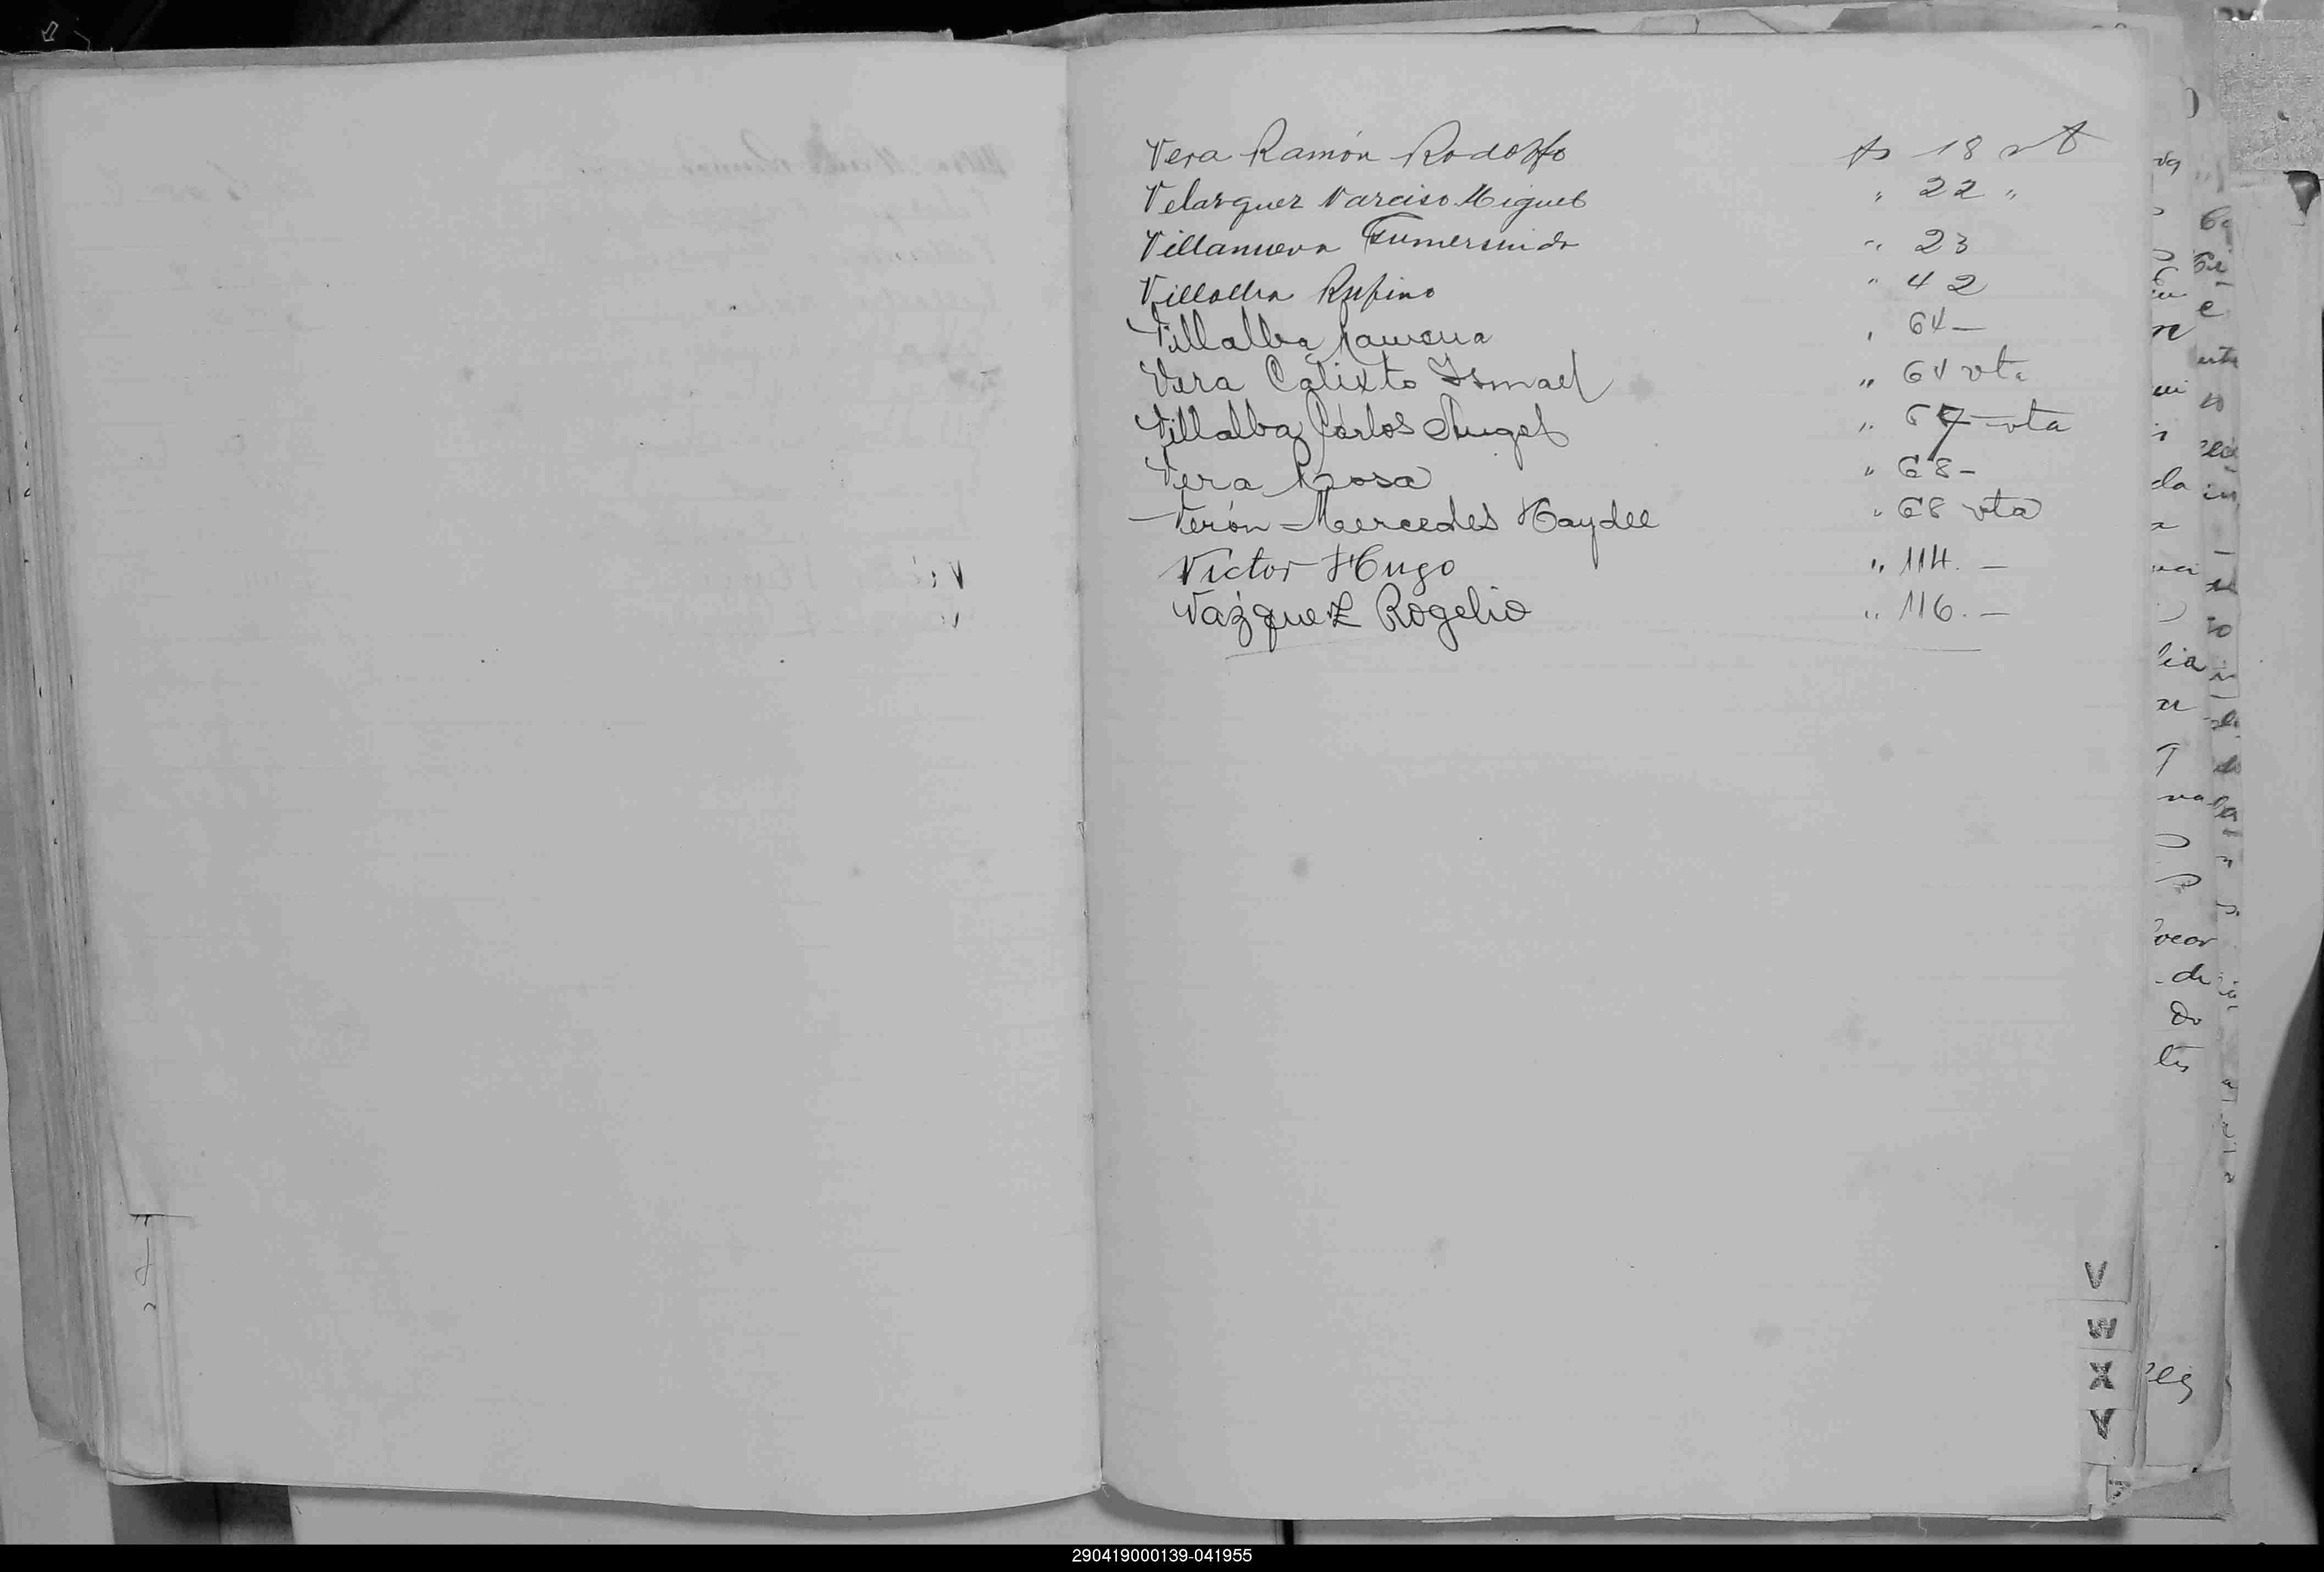 Vera Ramón Rodolfo fs 18 vt
Velazquez Narciso Miguel " 22 "
Villanueva Gumersindo " 23
Villalba Rufino " 42
Villalba Ramona " 64 —
Vera Calixto Ismael " 64 vta
Villalba Carlos Angel " 67 — vta
Vera Rosa " 68 -
Verón Mercedes Haydee " 68 vta
Victor Hugo " 114. —
Vazquez Rogelio " 116. —
V
W
X
Y
290419000139-041955